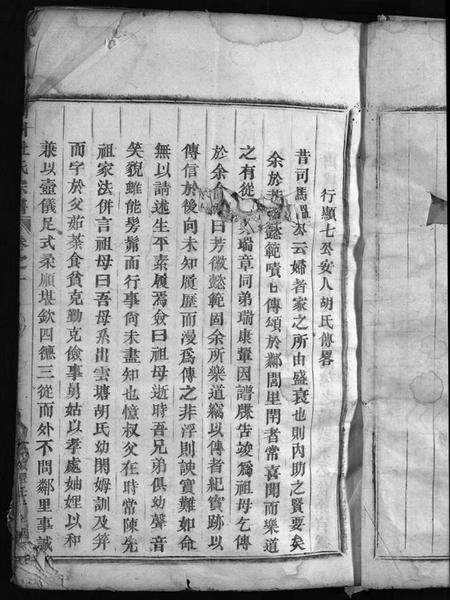 行顯七公安人胡氏傳畧
昔司馬溫公云婦者家之所由盛衰也則內助之賢要矣
余於胡懿範嘖口傳頌於鄰閭里閈者常喜聞而樂道
之有從瑞章同弟瑞康輩因譜牒告竣爲祖母乞傳
於余余曰芳徽懿範固余所樂道竊以傳者紀實跡以
傳信於後向未知履歷而漫爲傳之非浮則諛實難如命
無以請述生平素履焉僉曰祖母逝時吾兄弟俱幼聲音
笑貌雖能髣髴而行事尚未盡知也憶叔父在時常陳先
祖家法併言祖母曰吾母系出雲塘胡氏幼閑姆訓及笄
而字於父茹荼食貧克勤克儉事舅姑以孝處妯娌以和
兼以壼儀足式柔順堪欽四德三從而外不問鄰里事誠
氏宗譜
卷之